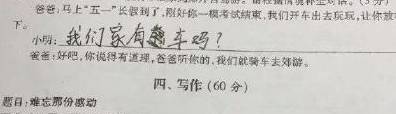 爸爸:马上"五一"长假到了,刚好你一模考试结束,我们开车出去玩玩,让你放
下。
小明:我们家有车吗?
爸爸:好吧,你说得有道理,爸爸听你的,我们就骑车去郊游。
四、写作(60分)
题目:难忘那份感动